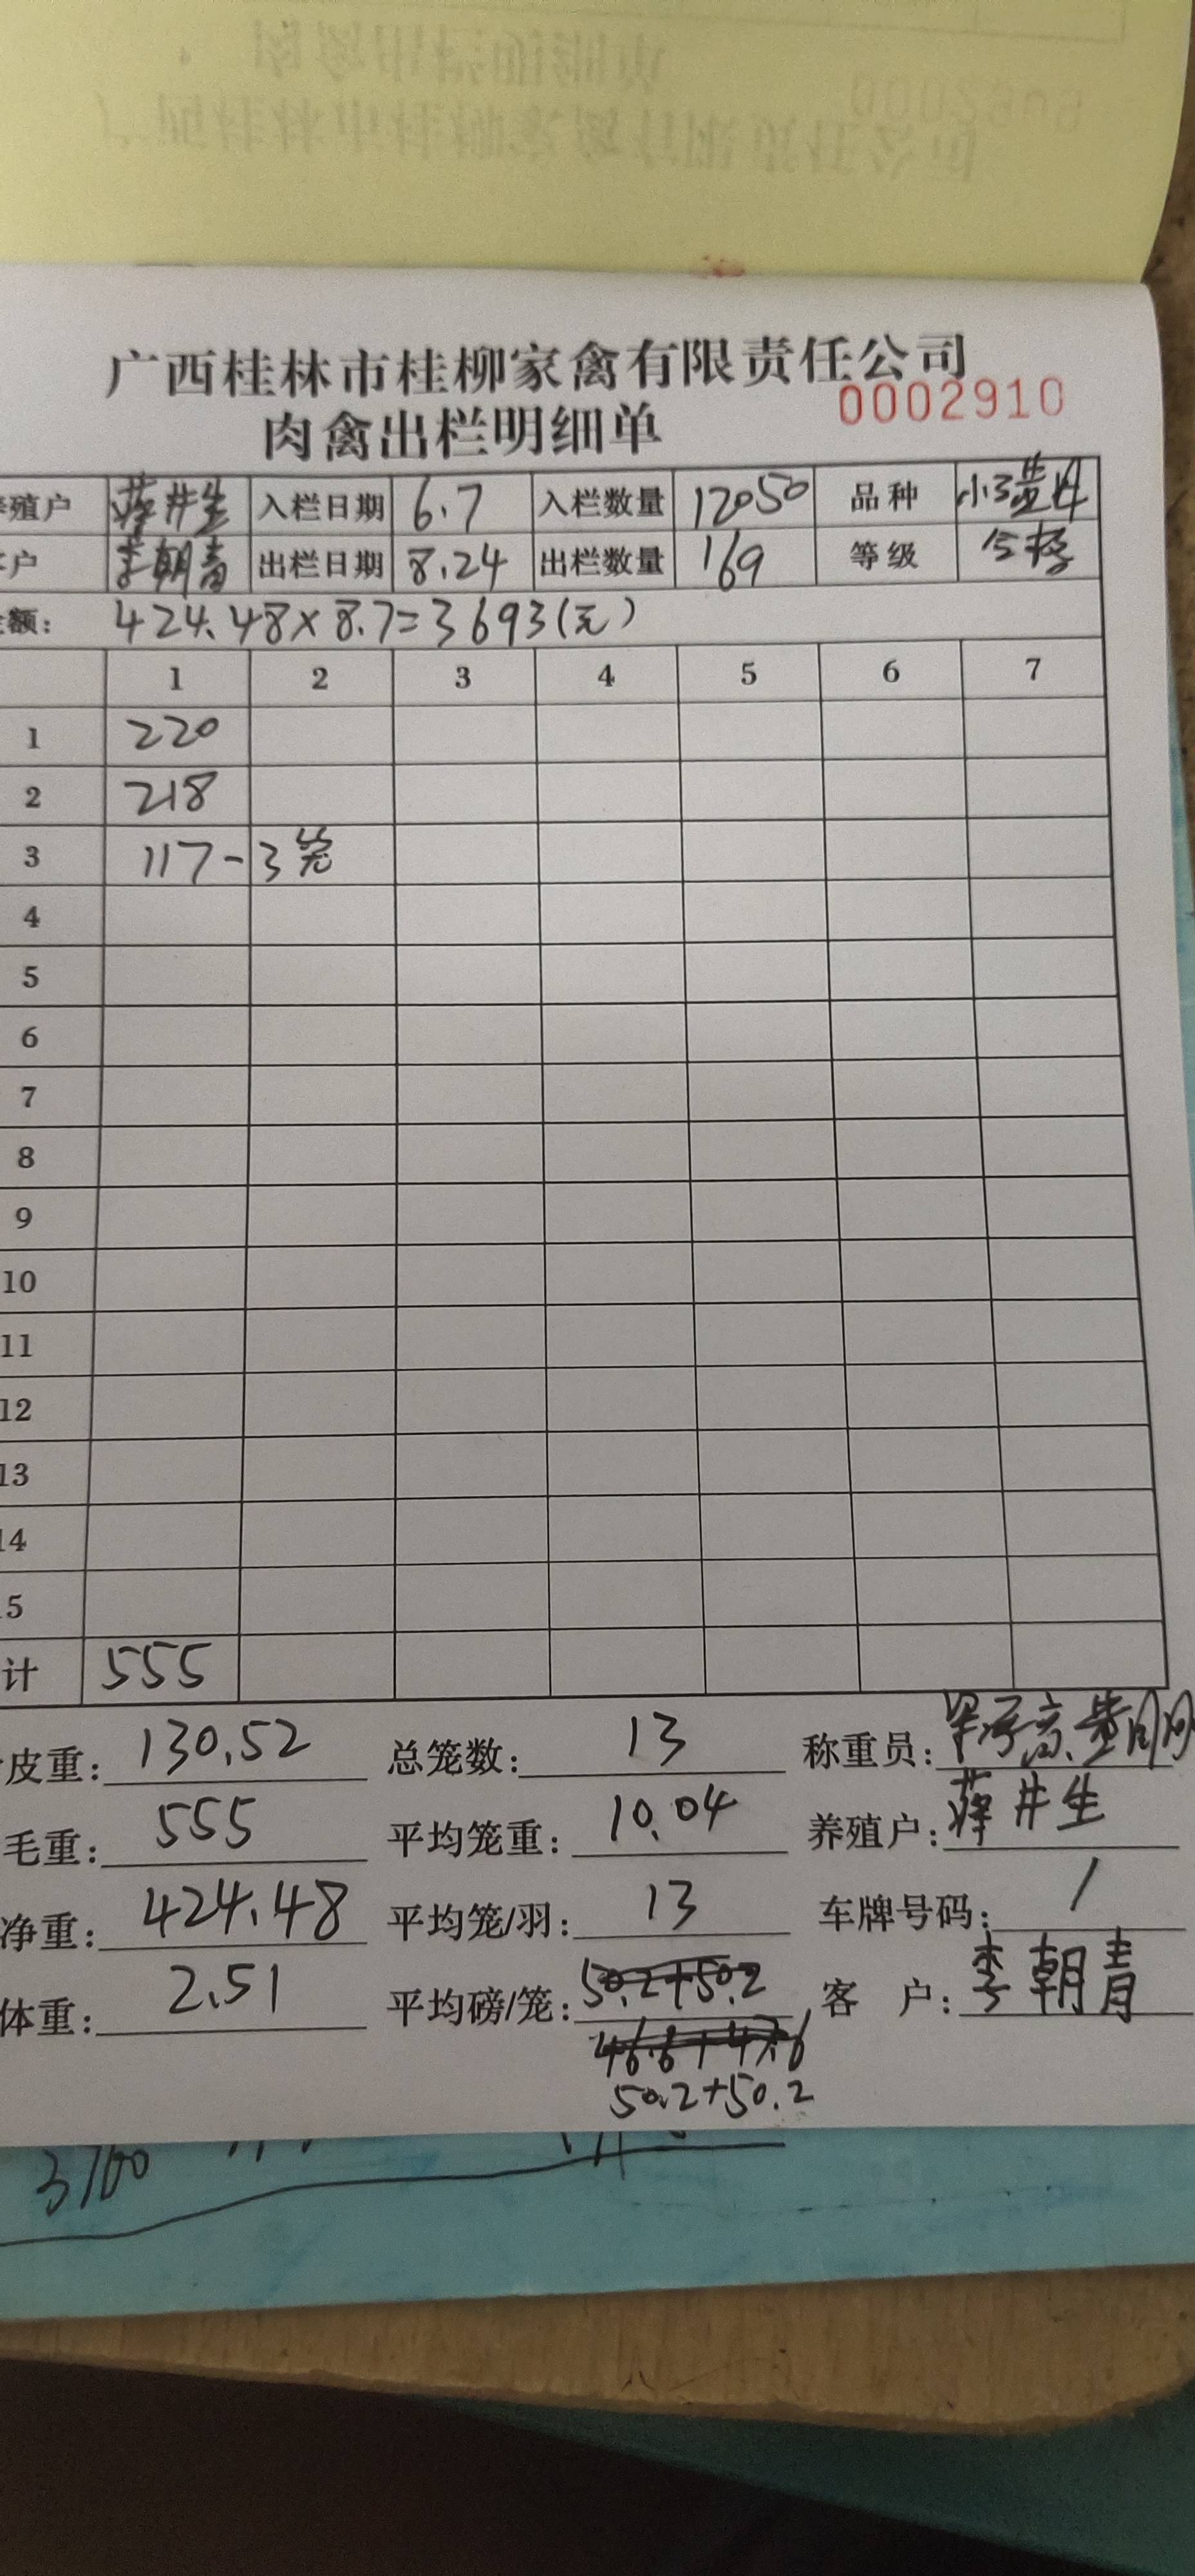 广西桂林市桂柳家禽有限责任公司
肉禽出栏明细单 0002910
殖户 蒋井生 入栏日期 6.7 入栏数量 12050 品种
户 李朝青 出栏日期 8.24 出栏数量 169 等级 合格
额: 424.48×8.7=3693(元)
1 2 3 4 5 6 7
1 220
2 218
3 117-3笼
4
5
6
7
8
9
10
11
12
13
14
15
计 555
皮重: 130.52 总笼数: 13 称重员:
毛重: 555 平均笼重: 10.04 养殖户: 蒋井生
净重: 424.48 平均笼/羽: 13 车牌号码: /
体重: 2.51 平均磅/笼: 50.2+50.2 客 户: 李朝青
46.6+47.6
50.2+50.2
3700